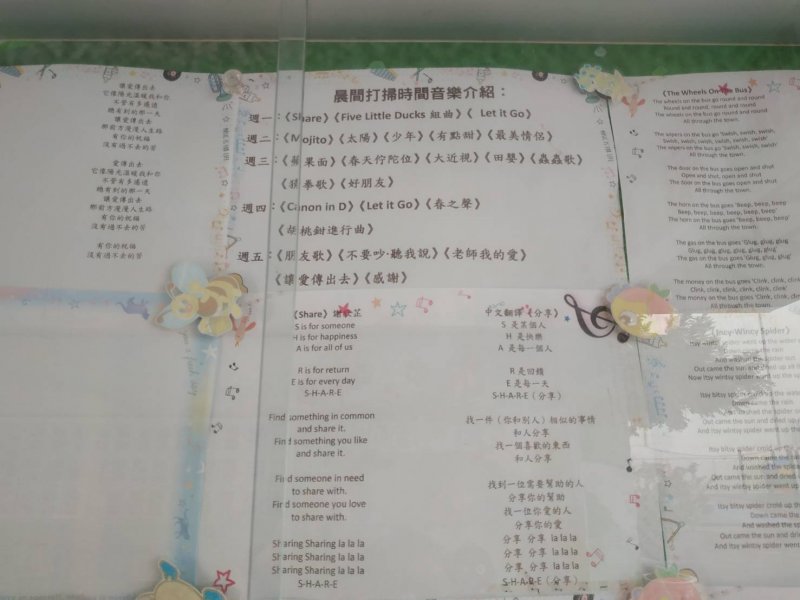 讓愛傳出去
它像陽光溫暖我和你
不管有多遙遠
總有到的那一天
讓愛傳出去
那前方漫漫人生路
有你的祝福
沒有過不去的苦
愛傳出去
它像陽光溫暖我和你
不管有多遙遠
總有到的那一天
讓愛傳出去
那前方漫漫人生路
有你的祝福
沒有過不去的苦
有你的祝福
沒有過不去的苦
晨間打掃時間音樂介紹：
週一：《Share》《Five Little Ducks 組曲》《 Let it Go》
週二：《Mojito》《太陽》《少年》《有點甜》《最美情侶》
週三：《蘋果面》《春天佇陀位》《大近視》《田嬰》《蟲蟲歌》
《猜拳歌》《好朋友》
週四：《Canon in D》《Let it Go》《春之聲》
《胡桃鉗進行曲》
週五：《朋友歌》《不要吵‧聽我說》《老師我的愛》
《讓愛傳出去》《感謝》
《Share》謝欣芷
S is for someone
H is for happiness
A is for all of us
R is for return
E is for every day
S-H-A-R-E
Find something in common
and share it.
Find something you like
and share it.
Find someone in need
to share with.
Find someone you love
to share with.
Sharing Sharing la la la
Sharing Sharing la la la
Sharing Sharing la la la
S-H-A-R-E
中文翻譯《分享》
S 是某個人
H 是快樂
A 是每一個人
R 是回饋
E 是每一天
S-H-A-R-E（分享）
找一件（你和別人）相似的事情
和人分享
找一個喜歡的東西
和人分享
找到一位需要幫助的人
分享你的幫助
找一位你愛的人
分享你的愛
分享 分享 la la la
分享 分享 la la la
分享 分享 la la la
S-H-A-R-E（分享）
《The Wheels On The Bus》
The wheels on the bus go round and round
Round and round, round and round
The wheels on the bus go round and round
All through the town.
The wipers on the bus go 'Swish, swish, swish,
Swish, swish, swish, swish, swish, swish'
The wipers on the bus go 'Swish, swish, swish'
All through the town.
The door on the bus goes open and shut
Open and shut, open and shut
The door on the bus goes open and shut
All through the town.
The horn on the bus goes 'Beep, beep, beep
Beep, beep, beep, beep, beep, beep'
The horn on the bus goes 'Beep, beep, beep'
All through the town.
The gas on the bus goes 'Glug, glug, glug
Glug, glug, glug, glug, glug, glug'
The gas on the bus goes 'Glug, glug, glug'
All through the town.
The money on the bus goes 'Clink, clink, clink,
Clink, clink, clink, clink, clink, clink'
The money on the bus goes 'Clink, clink, clink'
All through the town.
《Incy-Wincy Spider》
wincy spider went up the water
Down came the rain
And washed the spider out
Out came the sun and dried up all
Now itsy wincy spider went up the
Itsy bitsy spider climbed up the
Down came the rain
And washed the spider
Out came the sun and dried up
And itsy wincy spider went up the
Itsy bitsy spider climb up the
Down came the
And washed the spider
Out came the sun and dried
And itsy wincy spider went up
Itsy bitsy spider climb up the
Down came the
And washed the spider
Out came the sun and dri
And itsy wincy spider went up